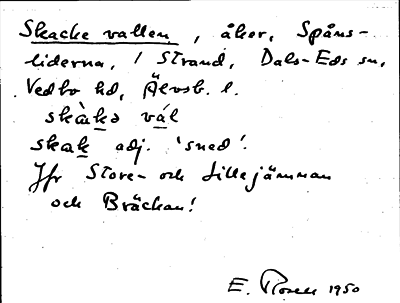 Skacke vallen, åker, Spåns-
liderna, / Strand, Dals-Eds sn,
Vedbo hd, Älvsb. l.
skàkə vál
skak adj. 'sned'.
Jfr Store- och Lillejämnan
och Bräckan!
E. 1950